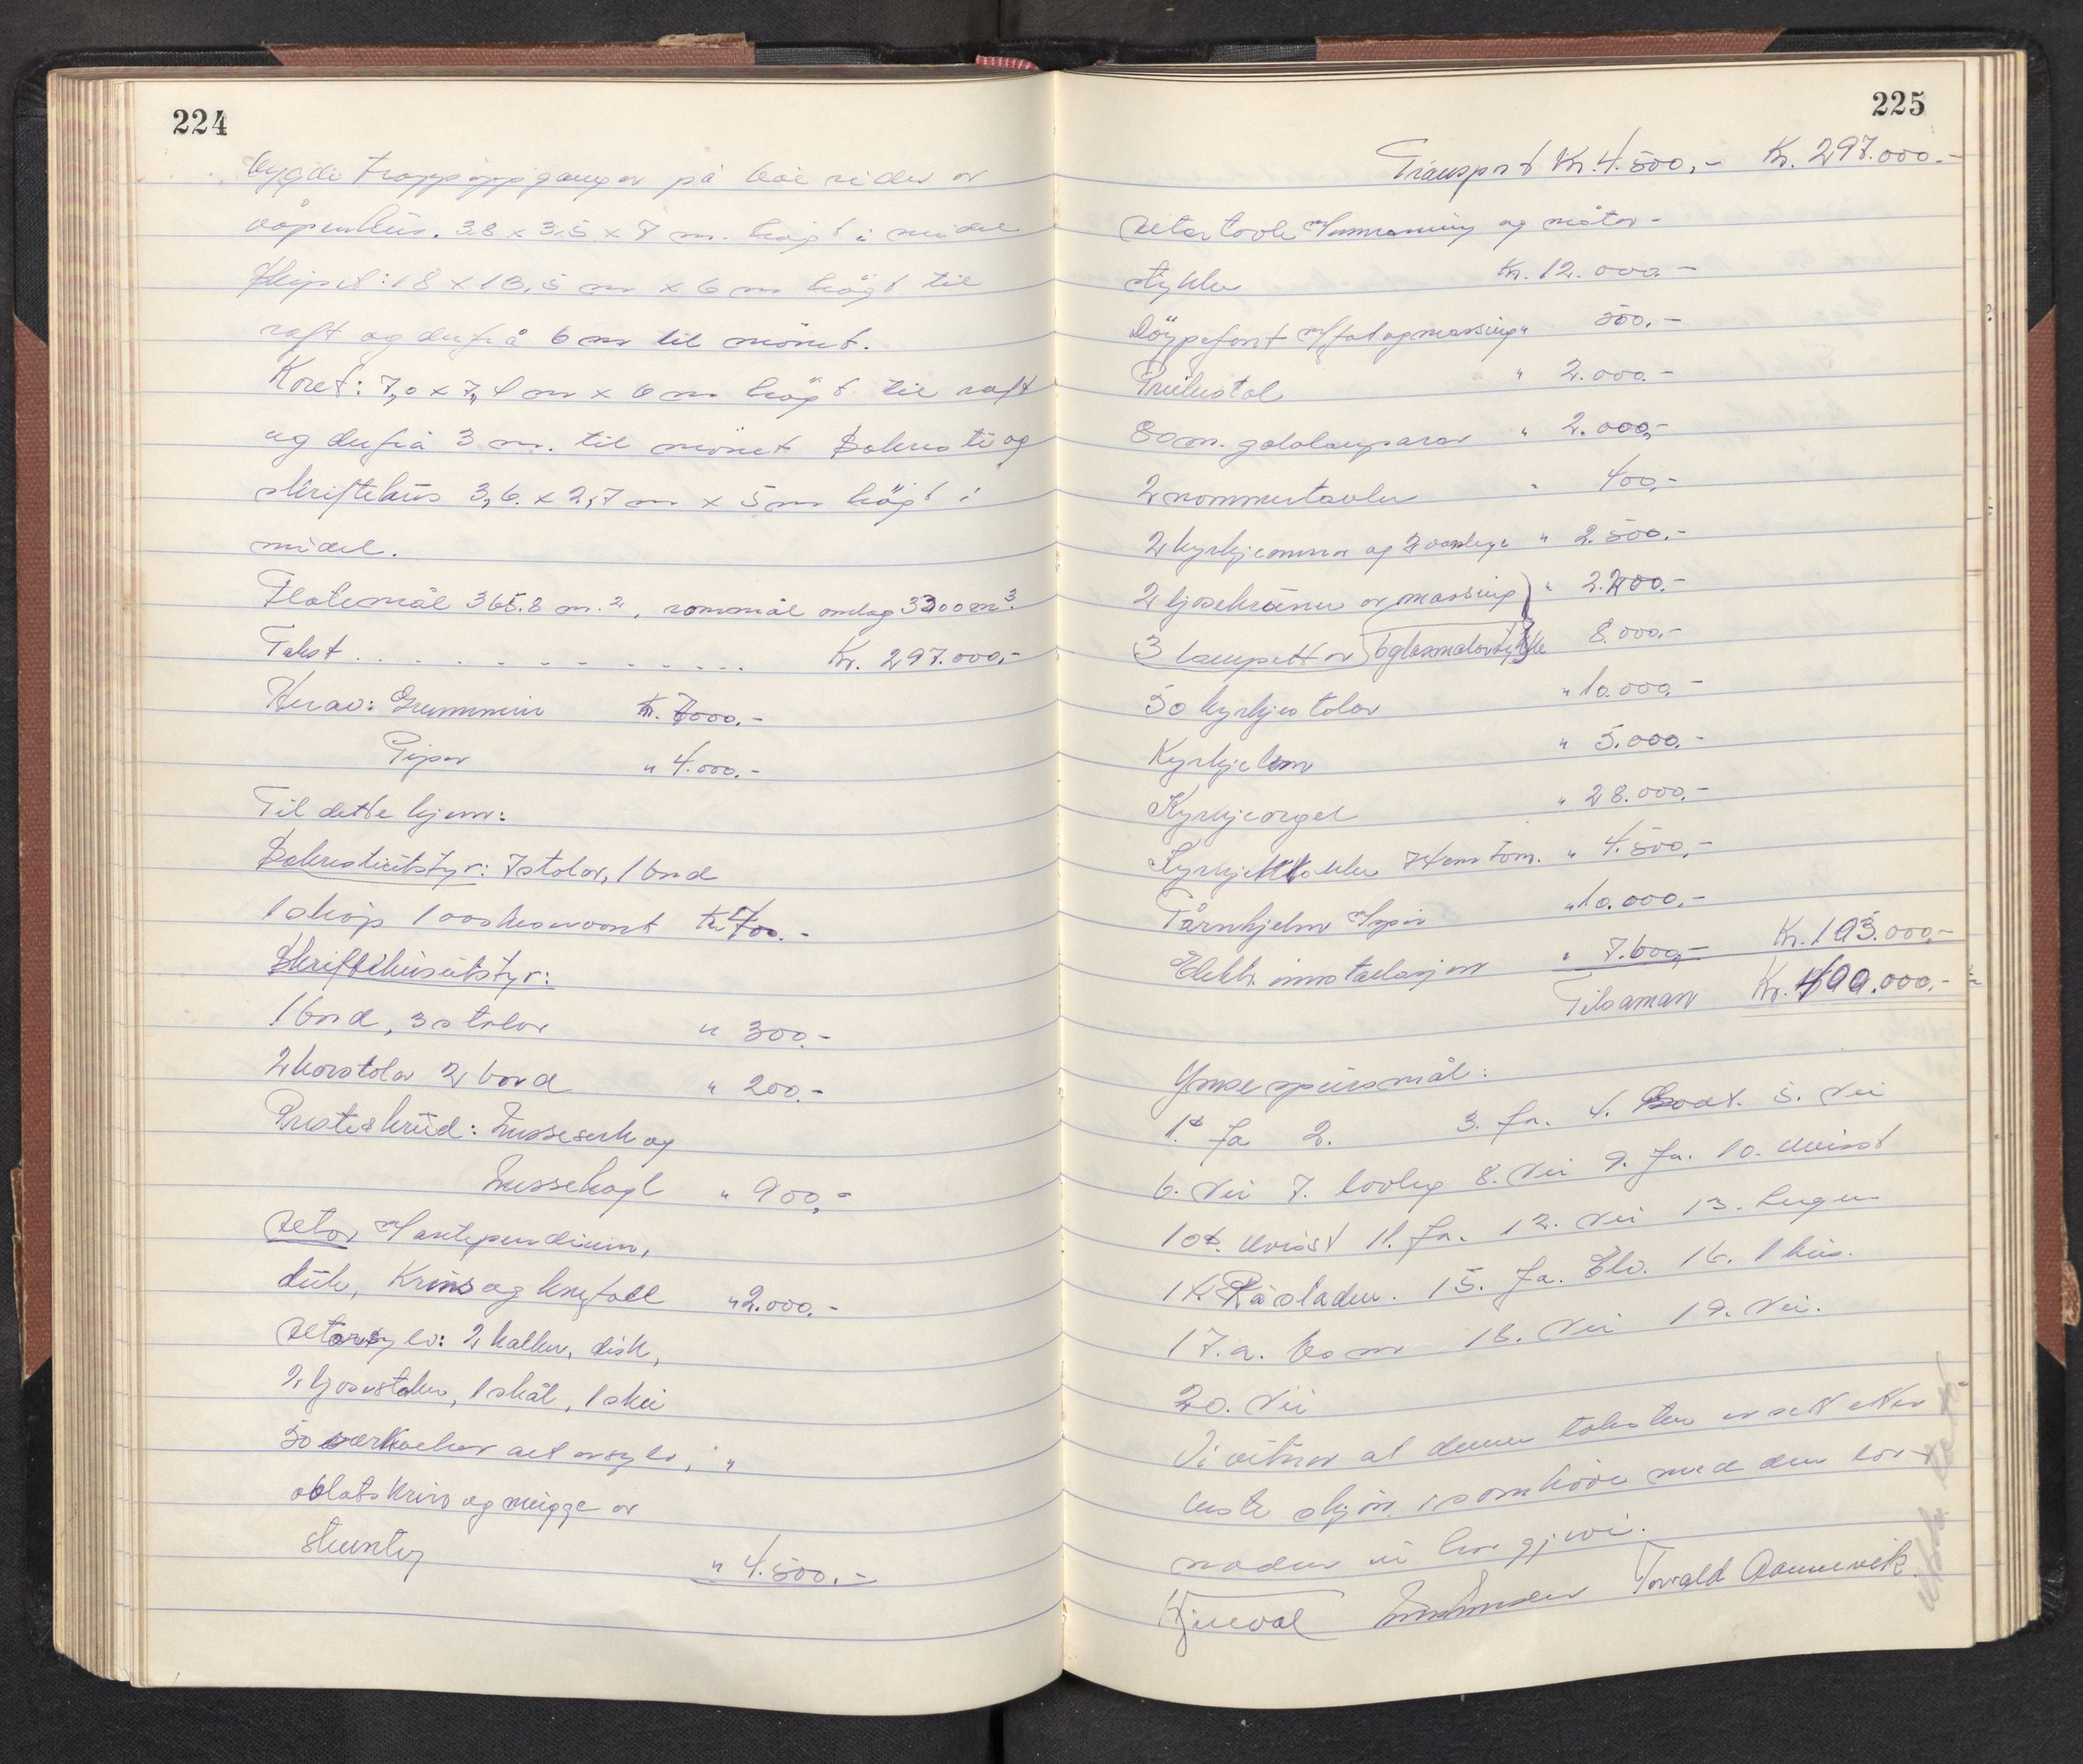 224
bygde trappoppgangar på båe sider av
våpenhus. 3,8 x 3,5 x 7 m. høgt i midel
Skipet: 18 x 13,5 m x 6 m høgt til
raft og derfrå 6 m til mønet.
Koret: 7,0 x 7,1 m x 6 m høgt til raft
og derfrå 3 m. til mønet Sakristi og
skriftehus 3,6 x 2,7 m x 5 m høgt i
midel.
Flatemål 365.8 m.², rommål omlag 3300 m³.
Takst . . . . . . . . . . . . . . Kr. 297.000,-
Herav: Grunnmur Kr. 7000.-
Piper " 4.000.-
Til dette kjem:
Sakristiutstyr: 7 stolar, 1 bord
1 skåp 1 vaskeservant Kr. 700.-
Skriftehusutstyr:
1 bord, 3 stolar " 300.-
2 korstolar 2 bord " 200.-
Presteskrud: Messeserk og
Messehagl " 900,-
Altar m/ antependium,
duk, krins og knefall " 2.000.-
Altarsylv: 2 kalkar, disk,
2 ljosestakar, 1 skål, 1 skei
50 særkalkar alt av sylv, "
oblatskrin og mugge av
" 4.500.-
225
Transport Kr. 4.500,- Kr. 297.000.-
Altartavle m/ innraming og måtar-
stykke Kr. 12.000.-
Døypefont m/ fat og messing " 500.-
Preikestol " 2.000.-
80 m. golvlauparar " 2.000,-
2 nommertavler " 400,-
2 kyrkjeomnar og " 2.500.-
2 ljosekruner av messing " 2.200.-
3 lampettar 6 glasmalarstykke 8.000.-
50 kyrkjestolar " 10.000.-
Kyrkje " 5.000.-
Kyrkjeorgel " 28.000.-
Kyrkjeklokke 74 cm tvm. " 4.500,-
Tårnhjelm m/ spir " 10.000.-
Elektr. innstallasjon " 7.600,- Kr. 103.000,-
Tilsaman Kr. 400.000.-
Ymse spursmål:
1. Ja 2. 3. Ja. 4. Godt. 5. Nei
6. Nei 7. Lovleg 8. Nei 9. Ja. 10. Uvisst
10b. Uvisst 11. Ja. 12. Nei 13. Ingen
14. 15. Ja. Elv. 16. 1 hus.
17. a. 18. Nei 19. Nei.
20. Nei
Vi vitnar at denne taksten er sett etter
beste skjøn i samhøve med den lov-
naden vi har gjeve.
Torvald Aannevik.